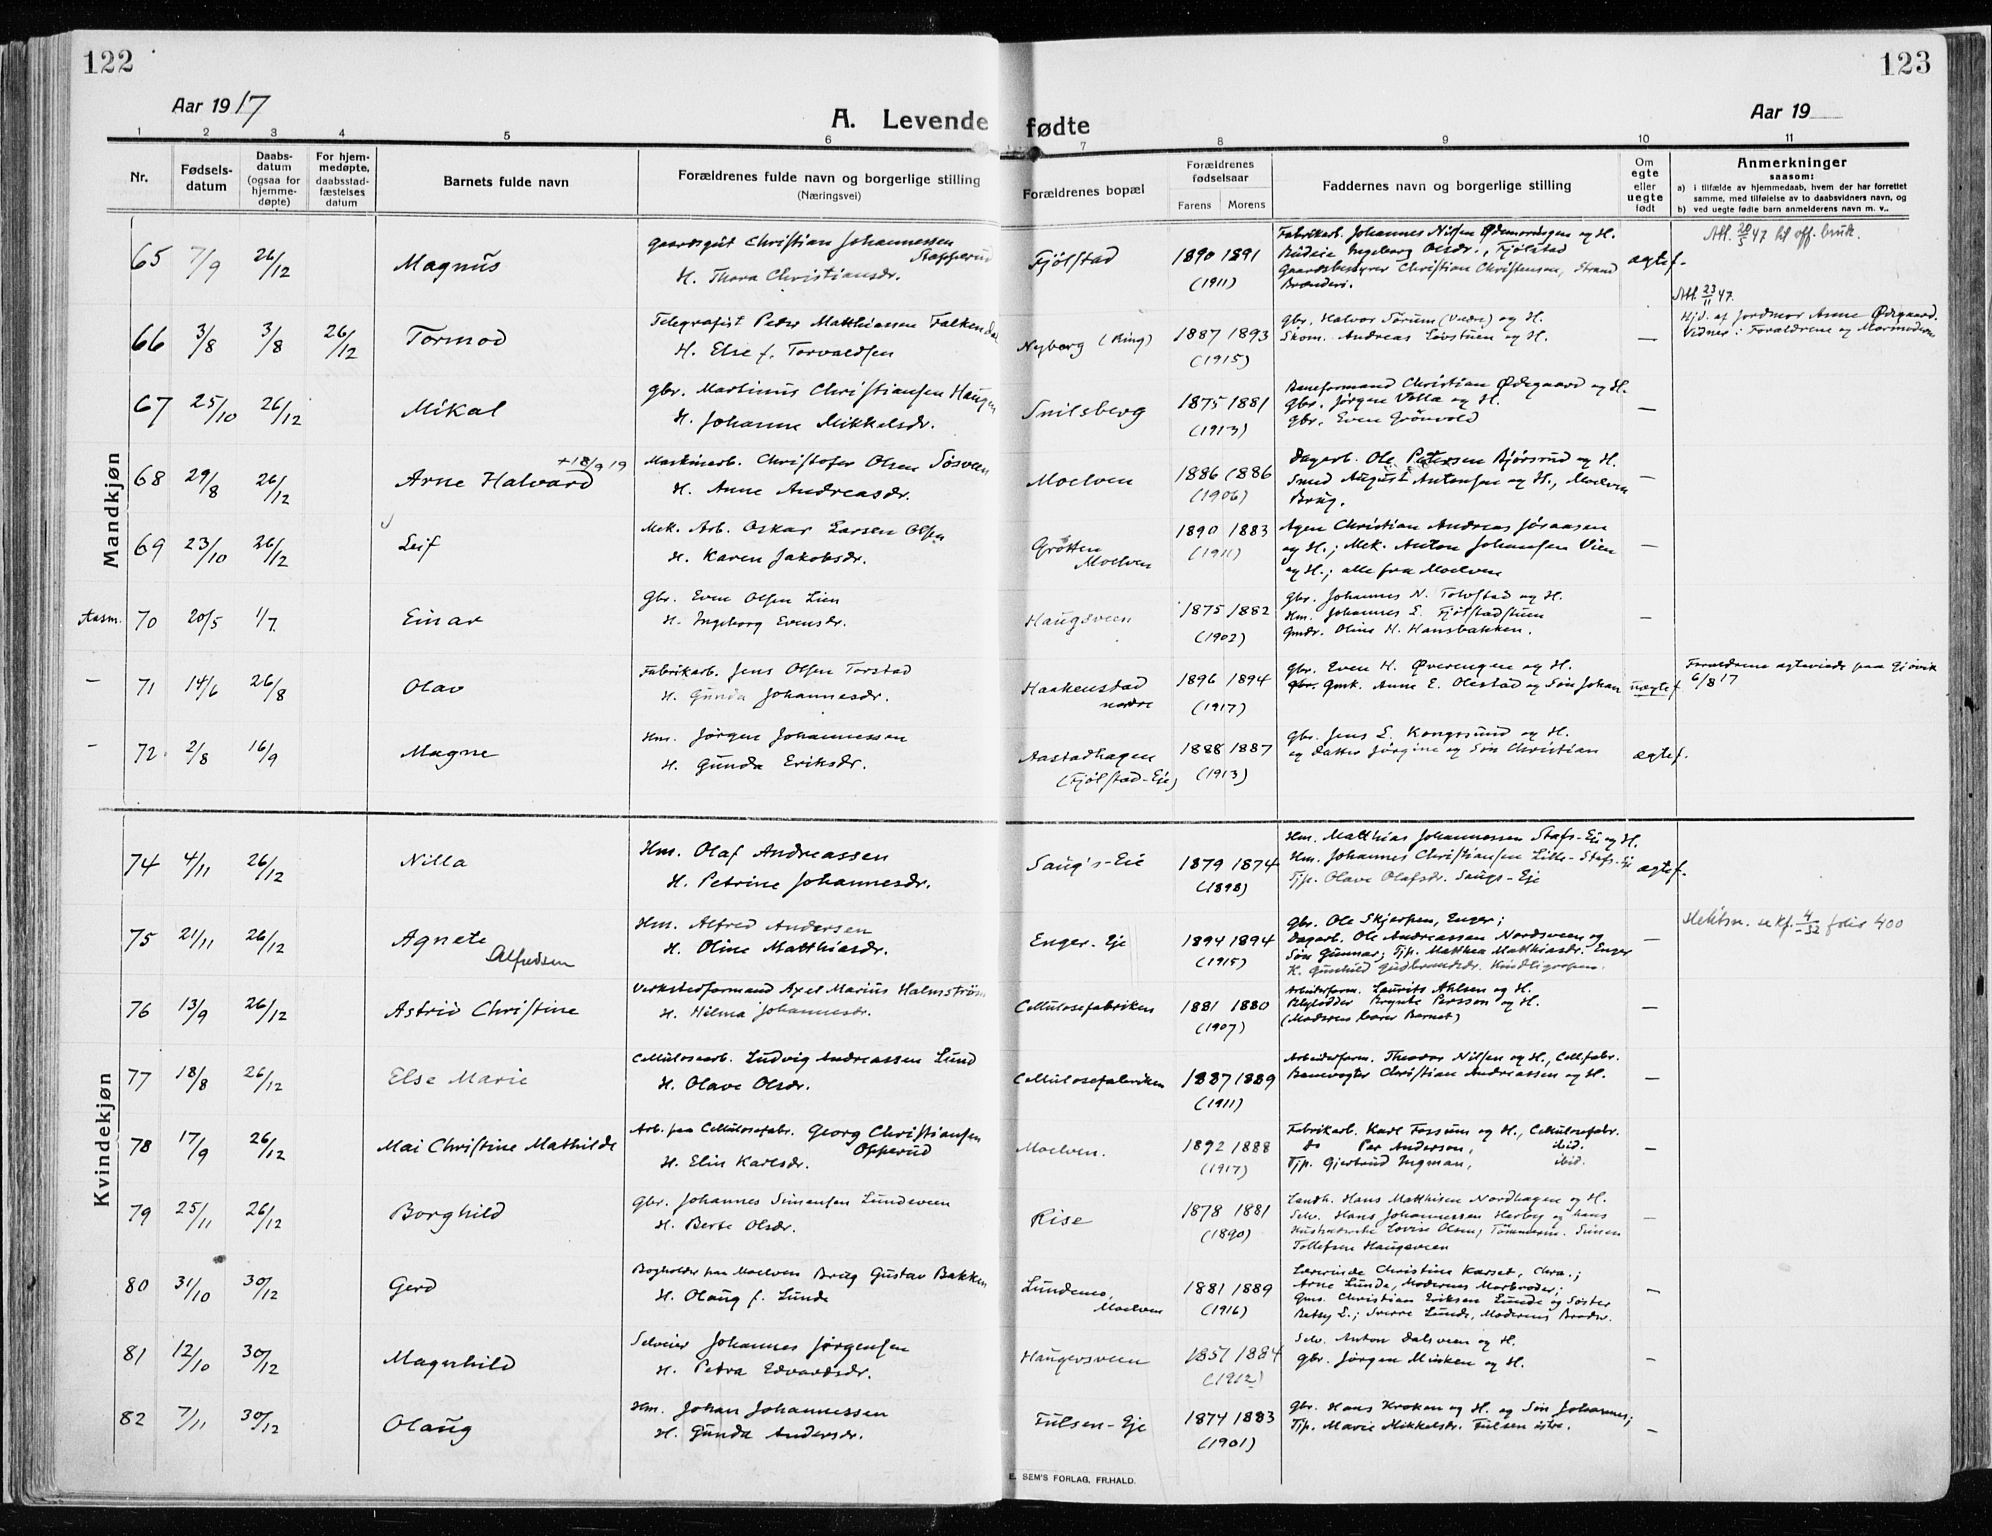 122
123
Aar 1917
A. Levende fødte
Aar 19
1 2 3 4 5 6 7 8 9 10 11
Nr.
Fødselsdatum
Daabsdatum (ogsaa for hjemmedøpte)
For hjemmedøpte, daabsstadfæstelses datum
Barnets fulde navn
Forældrenes fulde navn og borgerlige stilling
(Næringsvei)
Forældrenes bopæl
Forældrenes fødselsaar
Farens Morens
Faddernes navn og borgerlige stilling
Om egte eller uegte født
Anmerkninger
saasom:
a) i tilfælde av hjemmedaab, hvem der har forrettet samme, med tilføielse av to daabsvidners navn, og
b) ved uegte fødte barn anmelderens navn m. v..
Mandkjøn
65 7/9 26/12 Magnus
Gaardsgut Christian Johannessen Stopperud
H. Thora Christiansdr.
Fjølstad
1890 1891
(1911)
Fabrikarb. Johannes Nilsen Ødemordsgen og H.
Budeie Ingeborg Olsdr., Fjølstad
Gaardsbestyrer Christian Christensen, Strand
Brænderi.
ægtef.
Att. 20/5 47 til off. bruk.
66 3/8 3/8 26/12 Tormod
Telegrafist Peder Matthiassen Falkendal
H. Else f. Torvaldsen
Nyborg (Ring)
1887 1893
(1915)
Gbr. Halvor Sørum (Vedre) og H.
Skom. Andreas Løvstuen og H.
—
Att. 23/11 47.
Hjd. af Jordmor Anne Ødegaard.
Vidner: Forældrene og Mormoderen
67 25/10 26/12 Mikal
Gbr. Martinus Christiansen Haugen
H. Johanne Mikkelsdr.
Snilsberg
1875 1881
(1913)
Baneformand Christian Ødegaard og H.
Gbr. Jørgen Volla og H.
Gbr. Even Grønvold
—
68 29/8 26/12 Arne Halvard +18/9 19
Maskinarb. Christofer Olsen Søsveen
H. Anne Andreasdr.
Moelven
1886 1886
(1906)
Dagarb. Ole Petersen Bjørsrud og H.
Smed August Antonsen og H., Moelven
Brug.
—
69 23/10 26/12 Leif
Mek. Arb. Oskar Larsen Olsen
H. Karen Jakobsdr.
Grøtten
Moelven
1890 1883
(1911)
Agen Christian Andreas Joraasen
og H.; Mek. Anton Johansen Vien
og H.; alle fra Moelven
—
Aasm. 70 20/5 1/7 Einar
Gbr. Even Olsen Lien
H. Ingeborg Evensdr.
Haugsveen
1875 1882
(1902)
Gbr. Johannes N. Tolvstad og H.
Hm. Johannes E. Fjølstadstuen
Gmdr. Oline H. Hansbakken.
—
– 71 14/6 26/8 Olav
Fabrikarb. Jens Olsen Torstad
H. Gunda Johannesdr.
Haakenstad
nordre
1896 1894
(1917)
Gbr. Even H. Øverengen og H.
Gbr. Gmk. Anne E. Olestad og Søn Johan
uægtef.
Forældrene ægteviede paa Gjøvik
6/8 17
– 72 2/8 16/9 Magne
Hm. Jørgen Johannessen
H. Gunda Eriksdr.
Aastadhagen
(Fjølstad-Eje)
1888 1887
(1913)
Gbr. Jens L. Kongssund og H.
og Datter Jørgine og Søn Christian
ægtef.
Kvindekjøn
74 4/11 26/12 Nilla
Hm. Olaf Andreassen
H. Petrine Johannesdr.
Saug's-Eie
1879 1874
(1898)
Hm. Matthias Johannessen Stafs-Ei og H.
Hm. Johannes Christiansen Lille-Stafs-Ei
Tjp. Olave Olafsdr. Saugs-Eje
ægtef.
75 21/11 26/12 Agnete
Alfredsen
Hm. Alfred Andersen
H. Oline Matthiasdr.
Enger-Eje
1894 1894
(1915)
Gbr. Ole Skjerpen, Enger;
Dagarb. Ole Andreassen Nordsveen og
Søn Gunnar; Tjp. Matthea Matthiasdr. Enger
K. Gunhild Gudbrandsdr. Kindligropen.
—
folio 400
76 13/9 26/12 Astrid Christine
Verkstedformand Axel Marius Halmstrøm
H. Hilma Johannesdr.
Cellulosefabriken
1881 1880
(1907)
Arbeiderform. Laurits Ahlsen og H.
Blylodder Brynte Persson og H.
(Moderen bærer Barnet)
—
77 18/8 26/12 Else Marie
Cellulosearb. Ludvig Andreassen Lund
H. Olave Olsdr.
Cellulosefabriken
1887 1889
(1911)
Arbeiderform. Theodor Nilsen og H., Cell.fabr.
Banevogter Christian Andreassen og H.
—
78 17/9 26/12 Mai Christine Mathilde
Arb. paa Cellulosefabr. Georg Christiansen
Opperud
H. Elin Karlsdr.
Moelven.
1892 1888
(1917)
Fabrikarb. Karl Fossum og H., Cellulosefabr.
do Per Andersen, ibid.
Tjp. Gjertrud Ingman, ibid.
—
79 25/11 26/12 Borghild
Gbr. Johannes Simensen Lundeveen
H. Berte Olsdr.
Rise
1878 1881
(1890)
Landh. Hans Matthisen Nordhagen og H.
Selv. Hans Johannessen Herberg og hans
Lovise Olsen; Tømmerm. Simen
Tollefsen Haugsveen
—
80 31/10 30/12 Gerd
Bogholder paa Moelven Brug Gustav Bakken
H. Olaug f. Lunde
Lundemo,
Moelven
1881 1889
(1916)
Lærerinde Christine Karset, Chra.;
Arne Lunde, Moderens Morbroder;
Gms. Christian Eriksen Lunde og Søster
Betsy L.; Sverre Lunde, Moderens Broder.
—
81 12/10 30/12 Magnhild
Selveier Johannes Jørgensen
H. Petra Edvardsdr.
Haugersveen
1857 1884
(1912)
Selv. Anton Dalsveen og H.
Gbr. Jørgen Minken og H.
—
82 7/11 30/12 Olaug
Hm. Johan Johannessen
H. Gunda Andersdr.
Fulsen-Eje
1874 1883
(1901)
Gbr. Hans Kroken og H. og Søn Johannes;
Tjp. Marie Mikkelsdr. Fulsen østre.
—
E. SEM'S FORLAG, FR.HALD.